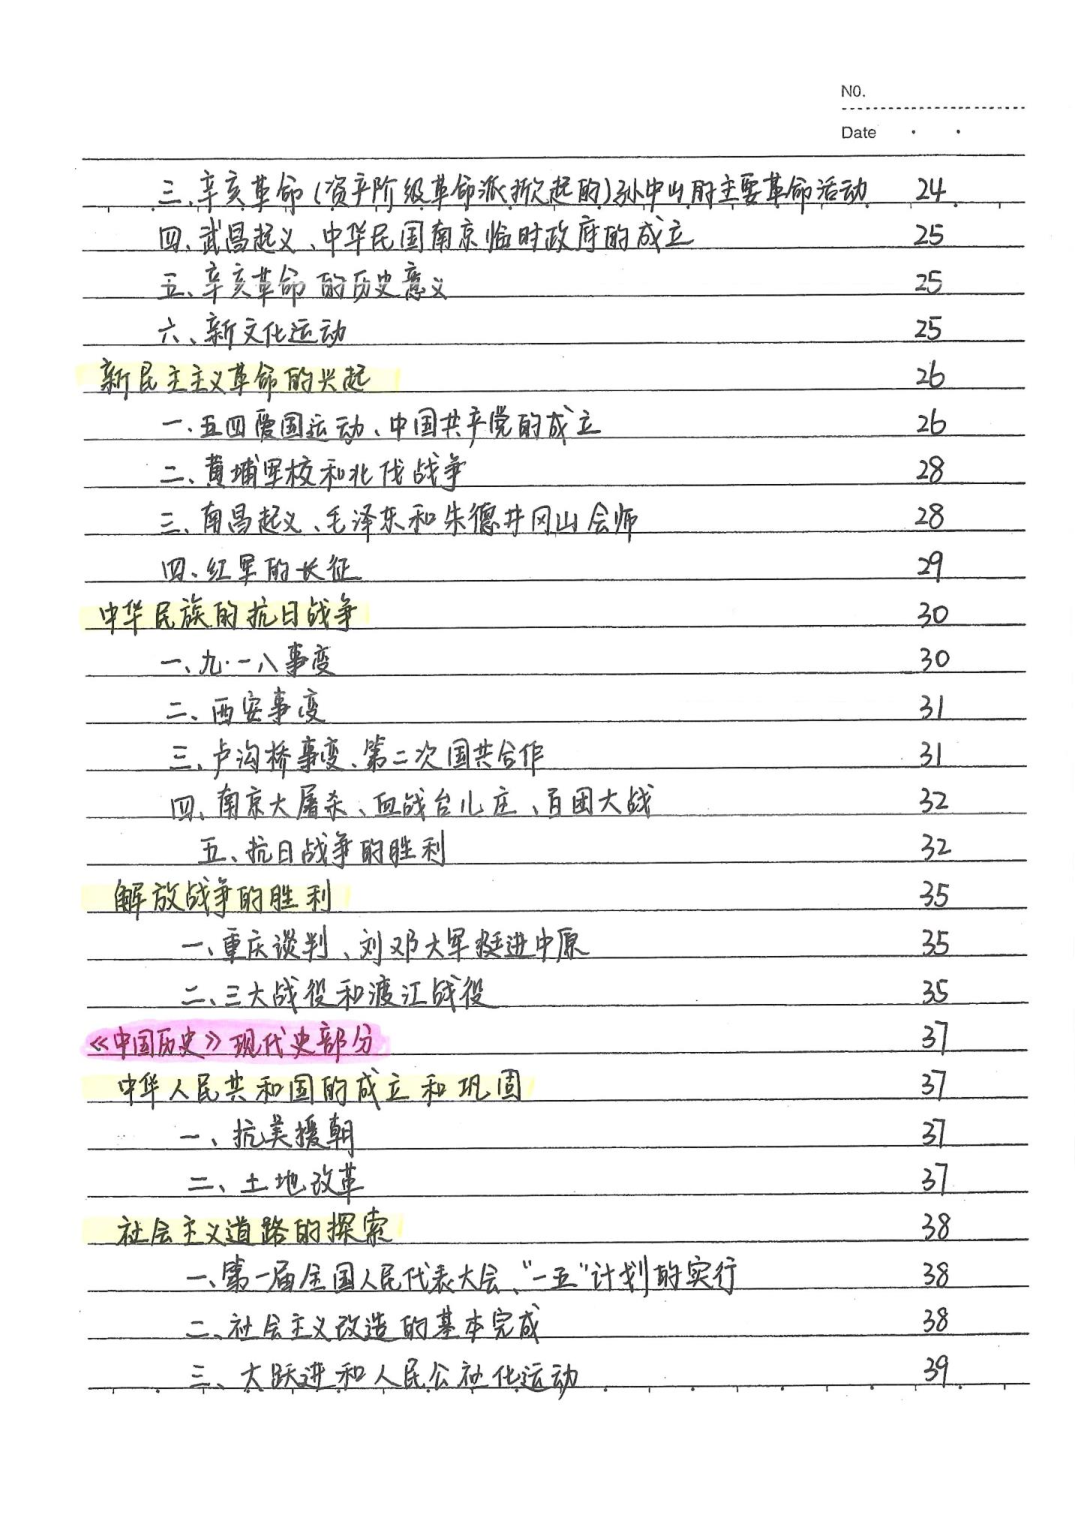 NO.
Date
三、辛亥革命(资产阶级革命派掀起的)孙中山的主要革命活动 24
四、武昌起义、中华民国南京临时政府的成立 25
五、辛亥革命的历史意义 25
六、新文化运动 25
新民主主义革命的兴起 26
一、五四爱国运动、中国共产党的成立 26
二、黄埔军校和北伐战争 28
三、南昌起义、毛泽东和朱德井冈山会师 28
四、红军的长征 29
中华民族的抗日战争 30
一、九·一八事变 30
二、西安事变 31
三、卢沟桥事变、第二次国共合作 31
四、南京大屠杀、血战台儿庄、百团大战 32
五、抗日战争的胜利 32
解放战争的胜利 35
一、重庆谈判、刘邓大军挺进中原 35
二、三大战役和渡江战役 35
《中国历史》现代史部分 37
中华人民共和国的成立和巩固 37
一、抗美援朝 37
二、土地改革 37
社会主义道路的探索 38
一、第一届全国人民代表大会、“一五”计划的实行 38
二、社会主义改造的基本完成 38
三、大跃进和人民公社化运动 39